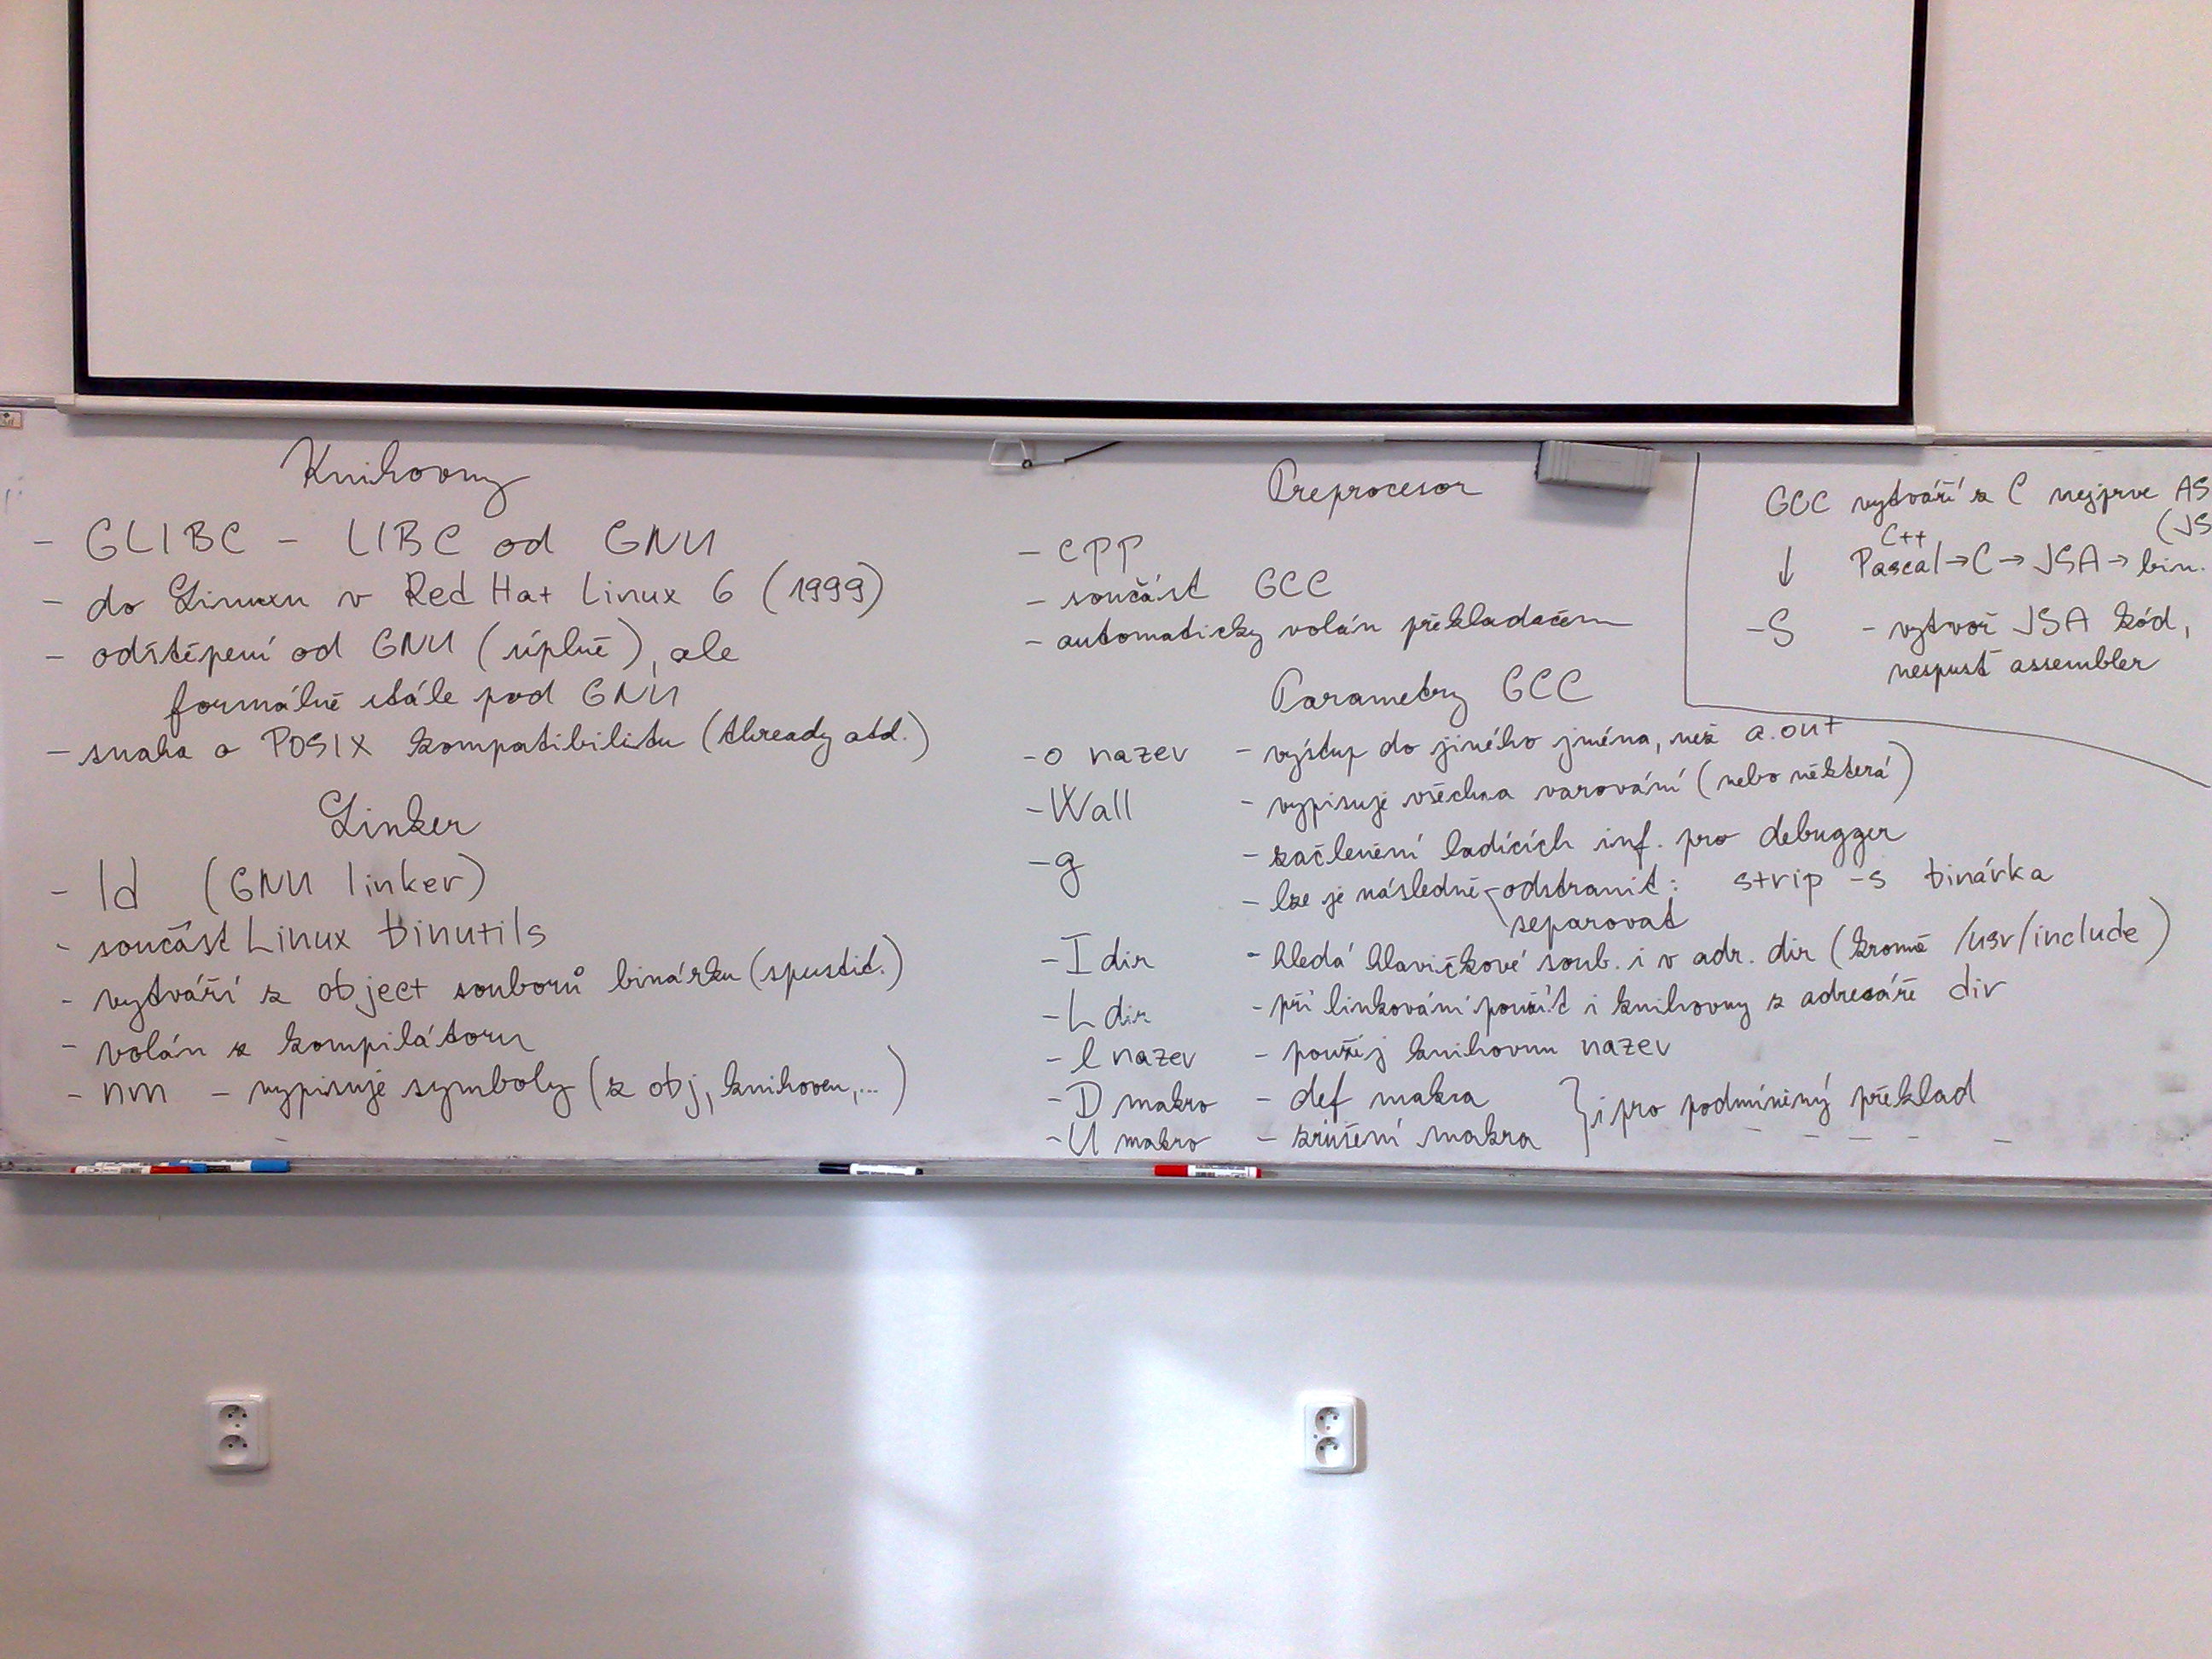 Knihovny
- GLIBC - LIBC od GNU
- do Linuxu v Red Hat Linux 6 (1999)
- odštěpení od GNU (úplně), ale
formálně stále pod GNU
- snaha o POSIX kompatibilitu (thready atd.)
Linker
- ld (GNU linker)
- součást Linux binutils
- vytváří z object souborů binárku (spustit.)
- volán z kompilátoru
- nm - vypisuje symboly (z obj, knihoven,...)
Preprocesor
- CPP
- součást GCC
- automaticky volán překladačem
Parametry GCC
-o nazev - výstup do jiného jména, než a.out
-Wall - vypisuje všechna varování (nebo některá)
-g - začlenění ladících inf. pro debugger
- lze je následně odstranit: strip -s binárka
separovat
-I dir - hledá hlavičkové soub. i v adr. dir (kromě /usr/include)
-L dir - při linkování použít i knihovny z adresáře dir
-l nazev - použij knihovnu nazev
-D makro - def makra
-U makro - zrušení makra } i pro podmíněný překlad
GCC vytváří z C nejprve AS
(JS
C++
↓ Pascal→C→JSA→bin.
-S - vytvoř JSA kód,
nespusť assembler